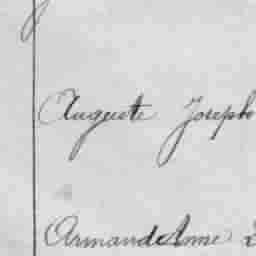 Auguste Joseph
Armande Anne